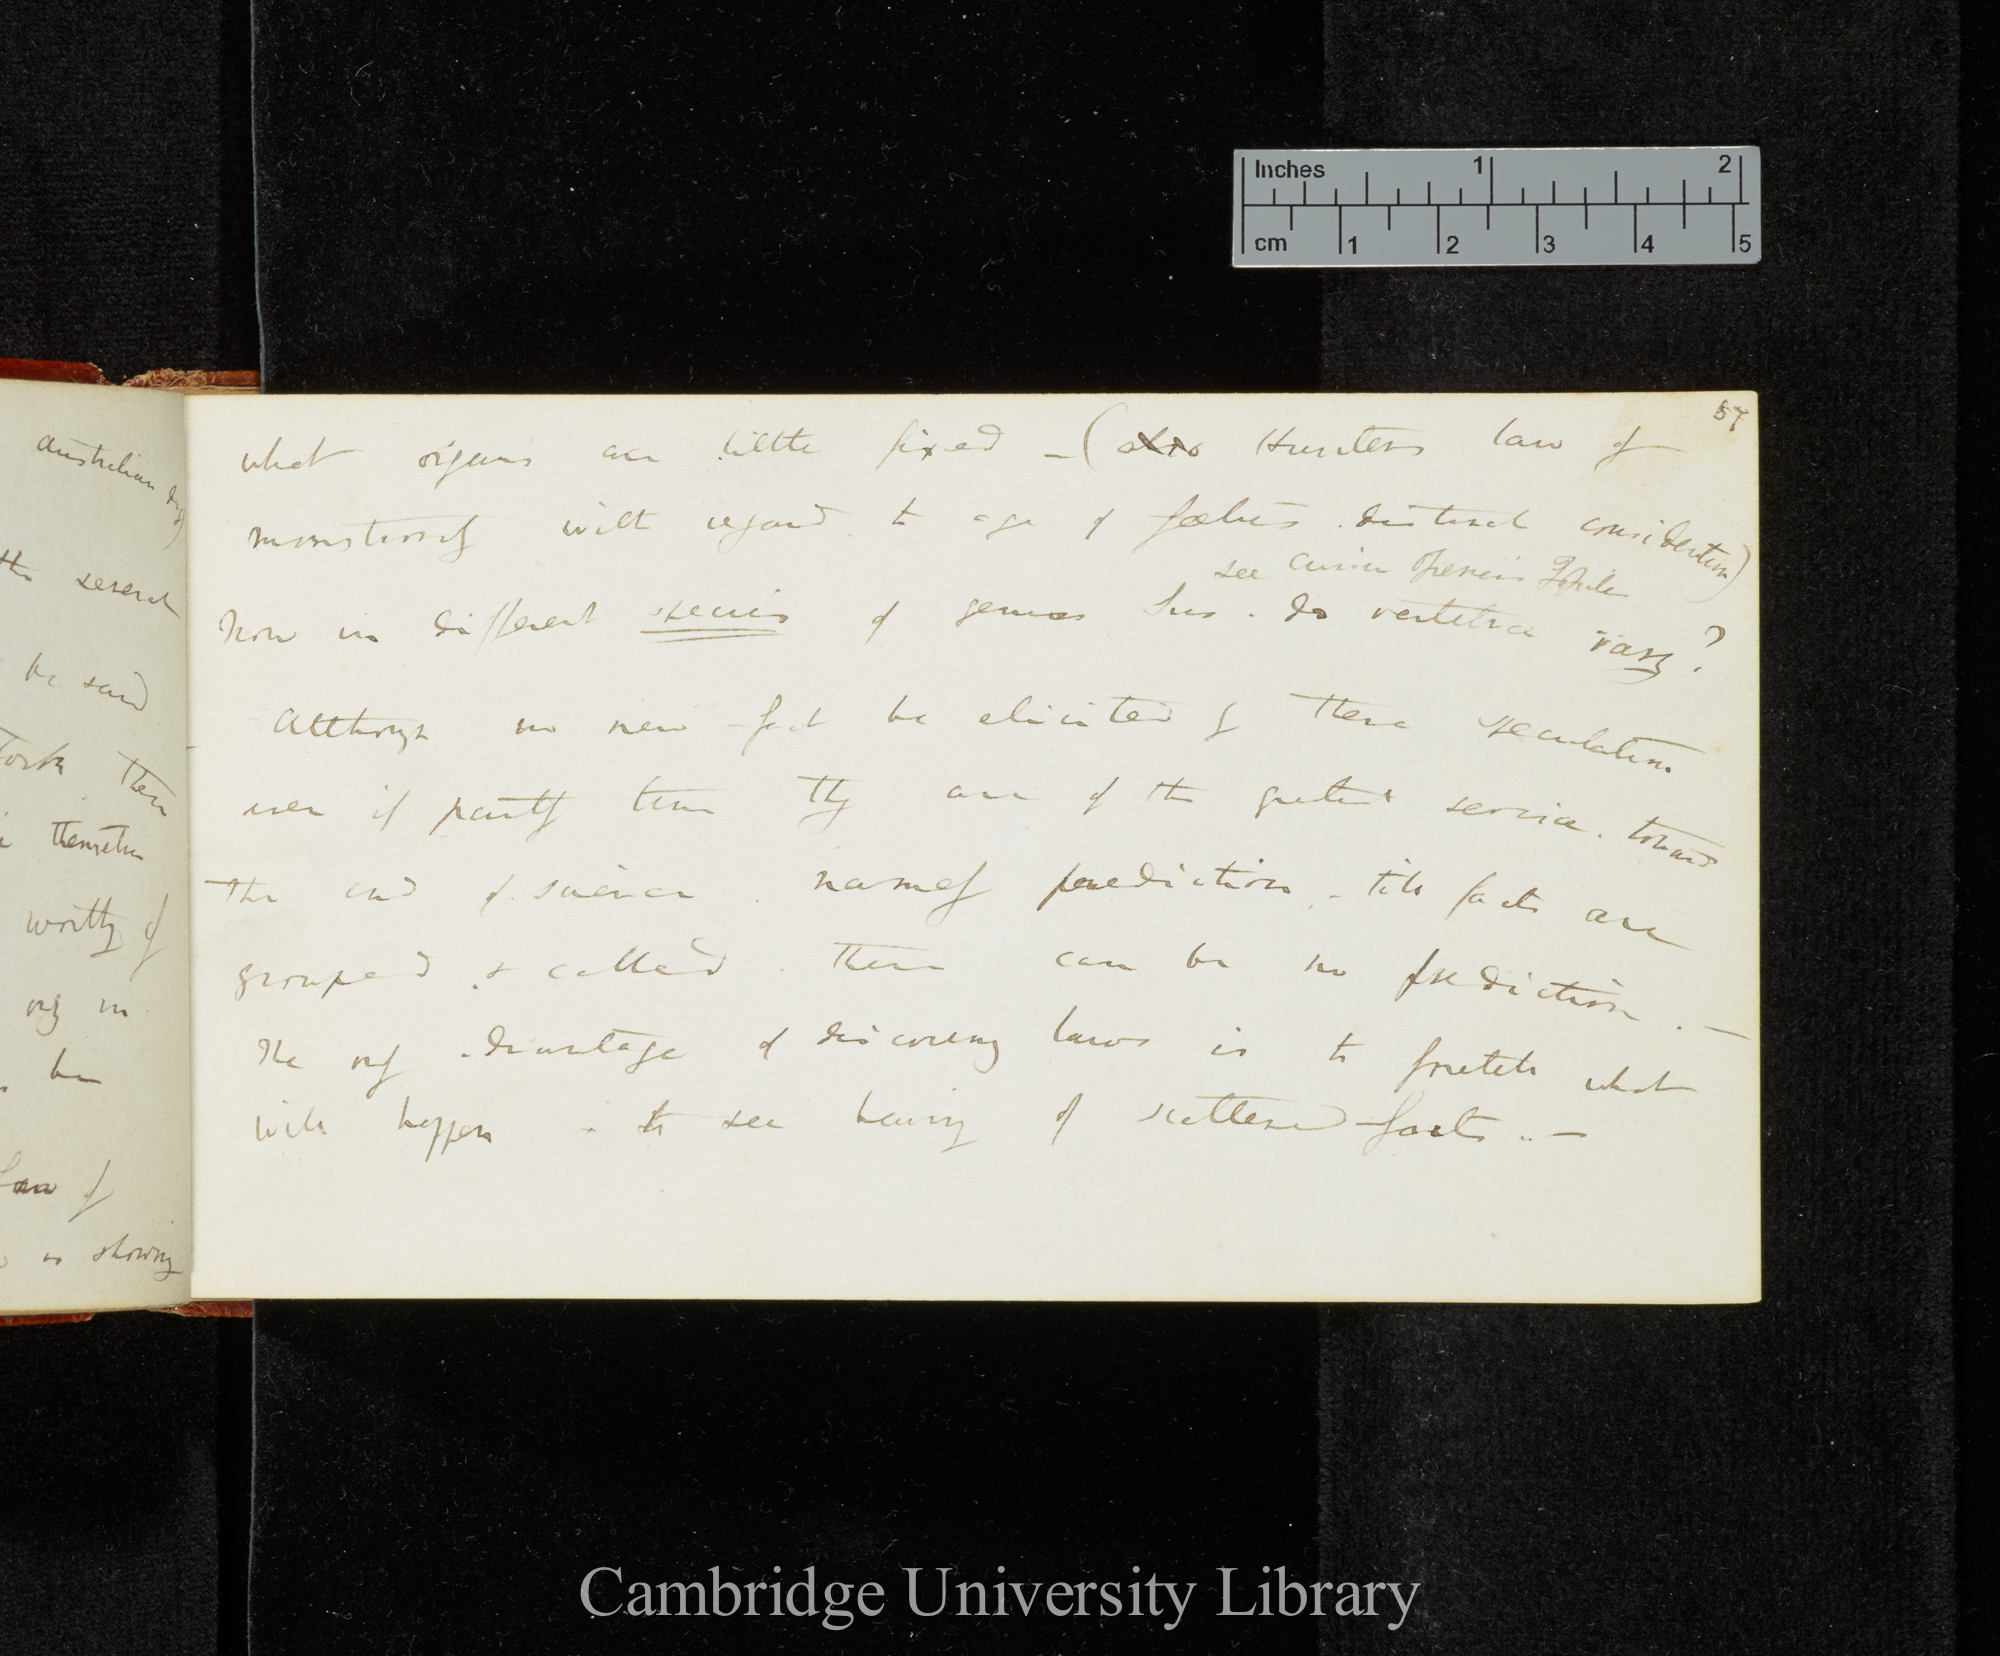 Inches 1 2
cm 1 2 3 4 5
57
Australian dog)
the several
be said
them
themselves
worthy of
only in
be
Law of
as showing
what organs are little fixed — (also Hunters law of
monstrosity with regard to age of foetus distinct consideration)
see Cuvier Ossemens Fossiles
How in different species of genus Sus. do vertebrae vary?
Although no new fact be elicited by these speculations
even if partly true they are of the greatest service. towards
the end of science. namely prediction. — till facts are
grouped. & called. there can be no prediction. —
The only advantage of discovering laws is to foretell what
will happen & to see bearing of scattered facts. —
Cambridge University Library